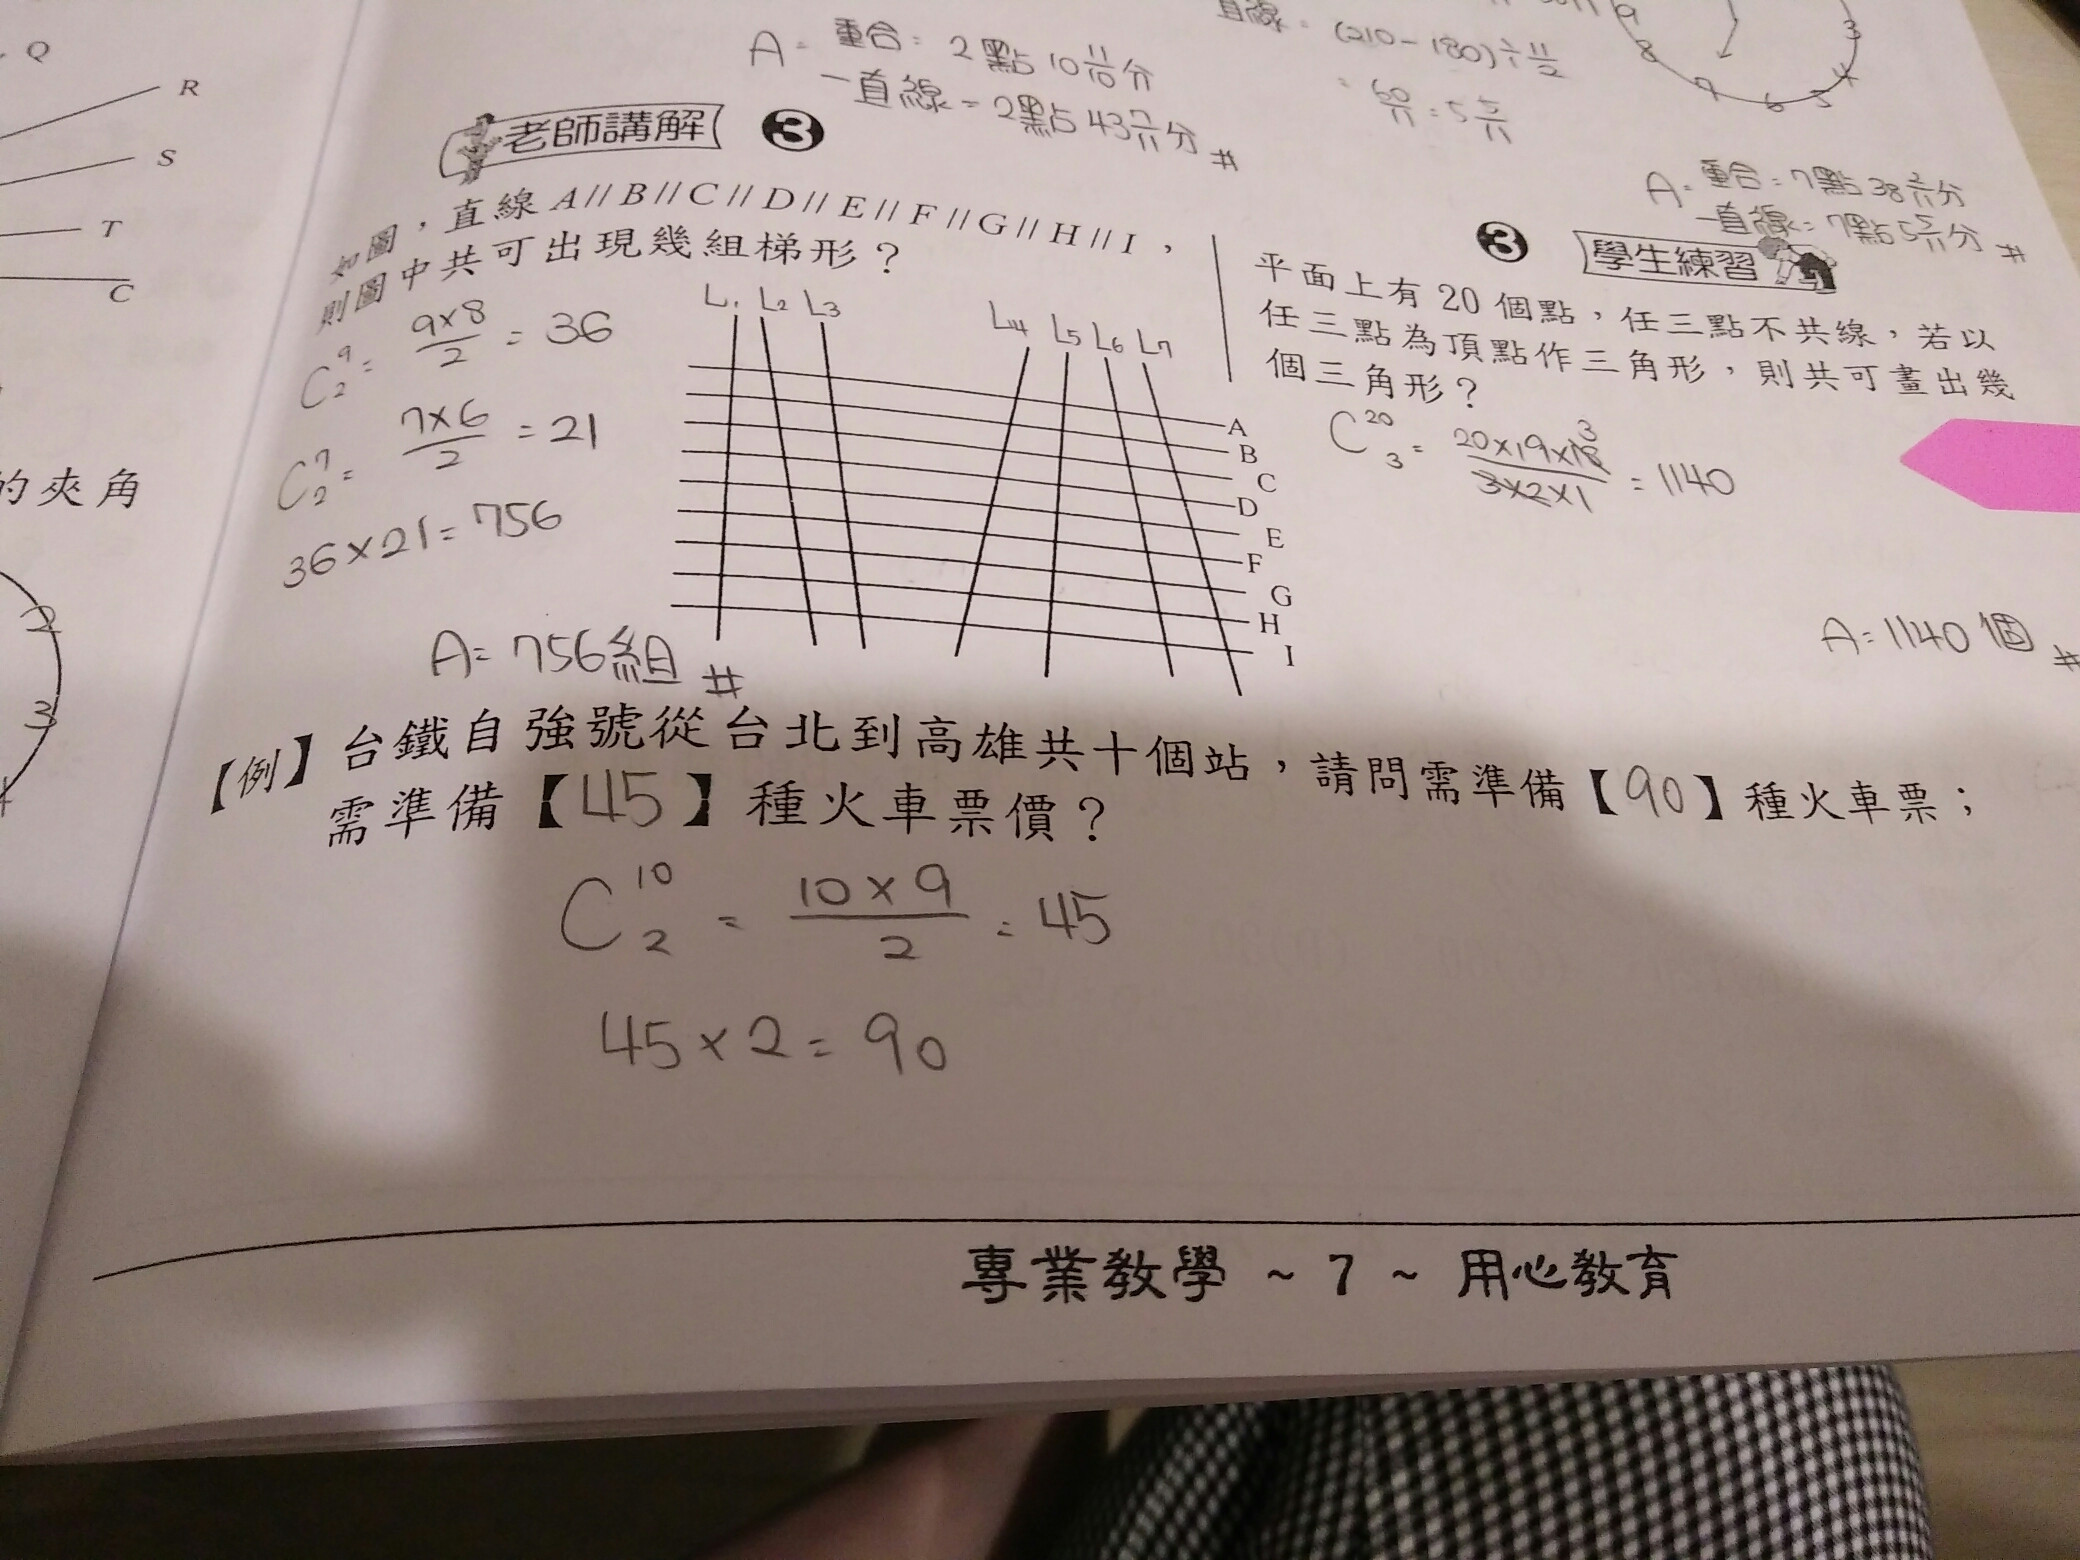 Q
R
S
T
C
的夾角
2
3
A= 重合= 2點10 11/10分
一直線=2點43 7/11分 #
直線= (210-180)÷11/2
= 60/11 = 5 5/11
9
8
7
6
5
4
3
老師講解 3
如圖,直線A//B//C//D//E//F//G//H//I,
則圖中共可出現幾組梯形?
C 9 2 = 9×8/2 = 36
C 7 2 = 7×6/2 = 21
36×21=756
A=756組 #
L1 L2 L3 L4 L5 L6 L7
A
B
C
D
E
F
G
H
I
A= 重合=7點38 2/11分
一直線=7點5 5/11分 #
3 學生練習
平面上有20個點,任三點不共線,若以
任三點為頂點作三角形,則共可畫出幾
個三角形?
C 20 3 = 20×19×18 3/3×2×1 = 1140
A=1140個 #
【例】台鐵自強號從台北到高雄共十個站,請問需準備【90】種火車票;
需準備【45】種火車票價?
C 10 2 = 10×9/2 = 45
45×2=90
專業教學 ~ 7 ~ 用心教育